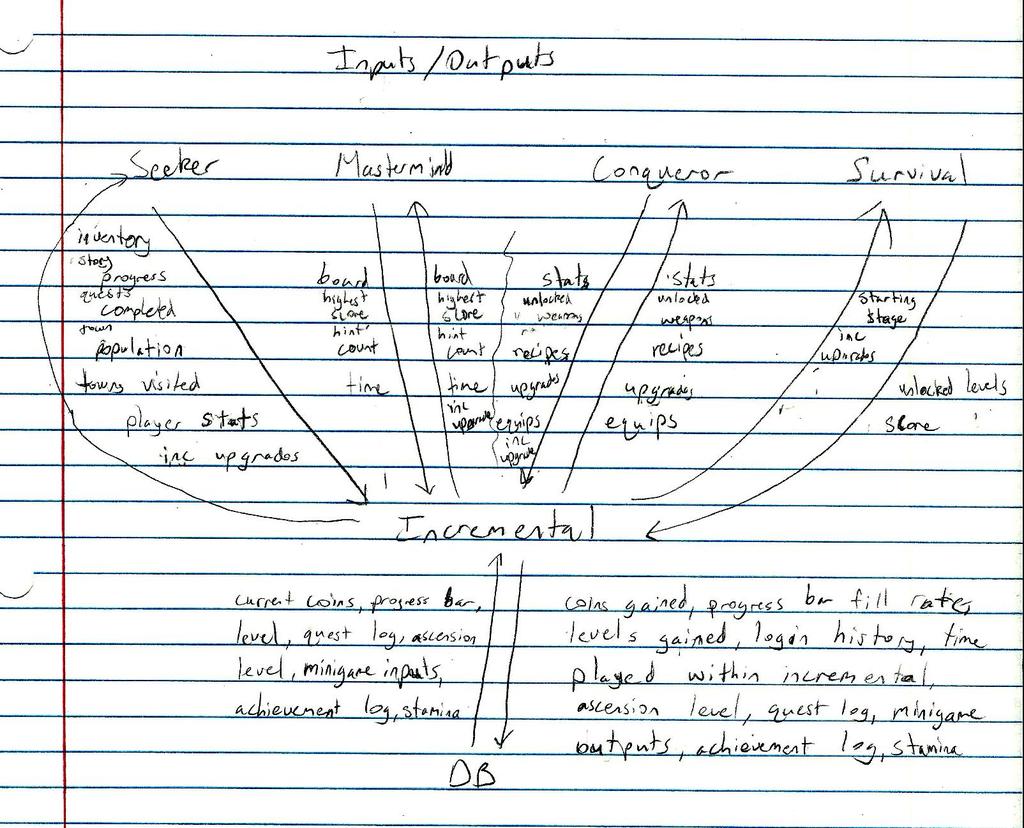 Inputs/Outputs
Seeker Mastermind Conqueror Survival
inventory
story
progress
quests
completed
town
population
towns visited
player stats
inc upgrades
board
highest
score
hint
count
time
board
highest
score
hint
count
time
inc
upgrade
stats
unlocked
weapons
recipes
upgrades
equips
inc
upgrade
stats
unlocked
weapons
recipes
upgrades
equips
starting
stage
inc
upgrades
unlocked levels
score
Incremental
current coins, progress bar,
level, quest log, ascension
level, minigame inputs,
achievement log, stamina
coins gained, progress bar fill rate,
levels gained, login history, time
played within incremental,
ascension level, quest log, minigame
outputs, achievement log, stamina
DB